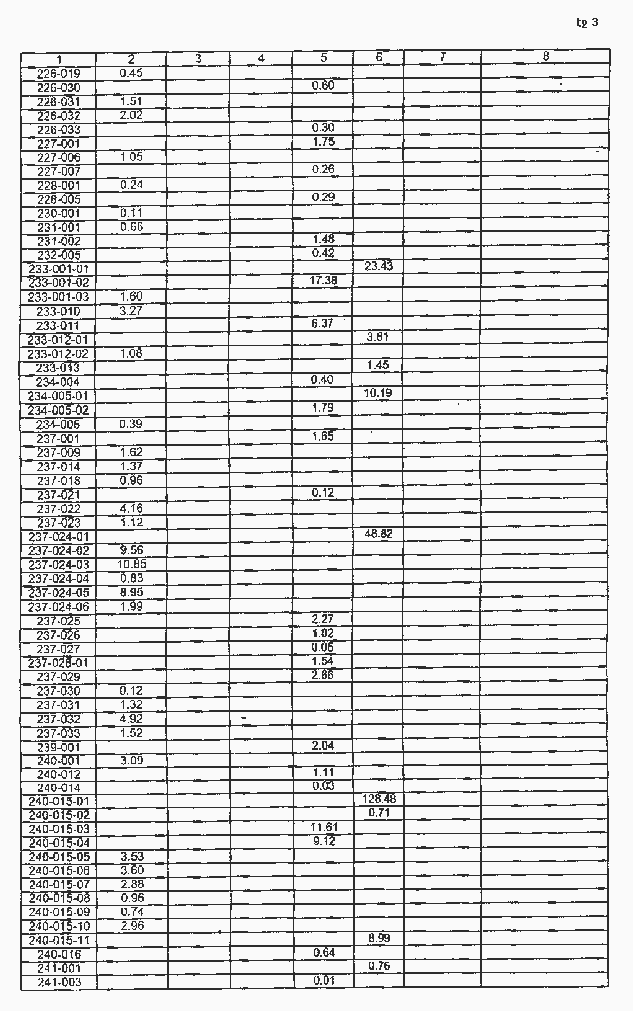 tg 3
1 2 3 4 5 6 7 8
226-019 0.45
226-030 0.60
226-031 1.51
226-032 2.02
226-033 0.30
227-001 1.75
227-006 1.05
227-007 0.26
228-001 0.24
228-005 0.29
230-001 0.11
231-001 0.66
231-002 1.48
232-005 0.42
233-001-01 23.43
233-001-02 17.38
233-001-03 1.60
233-010 3.27
233-011 6.37
233-012-01 3.81
233-012-02 1.08
233-013 1.45
234-004 0.40
234-005-01 10.19
234-005-02 1.79
234-006 0.39
237-001 1.65
237-009 1.62
237-014 1.37
237-018 0.96
237-021 0.12
237-022 4.16
237-023 1.12
237-024-01 48.82
237-024-02 9.56
237-024-03 10.85
237-024-04 0.83
237-024-05 8.95
237-024-06 1.99
237-025 2.27
237-026 1.02
237-027 0.05
237-028-01 1.54
237-029 2.86
237-030 0.12
237-031 1.32
237-032 4.92
237-033 1.52
239-001 2.04
240-001 3.09
240-012 1.11
240-014 0.03
240-015-01 128.48
240-015-02 0.71
240-015-03 11.61
240-015-04 9.12
240-015-05 3.53
240-015-06 3.60
240-015-07 2.88
240-015-08 0.96
240-015-09 0.74
240-015-10 2.96
240-015-11 8.99
240-016 0.64
241-001 0.76
241-003 0.01